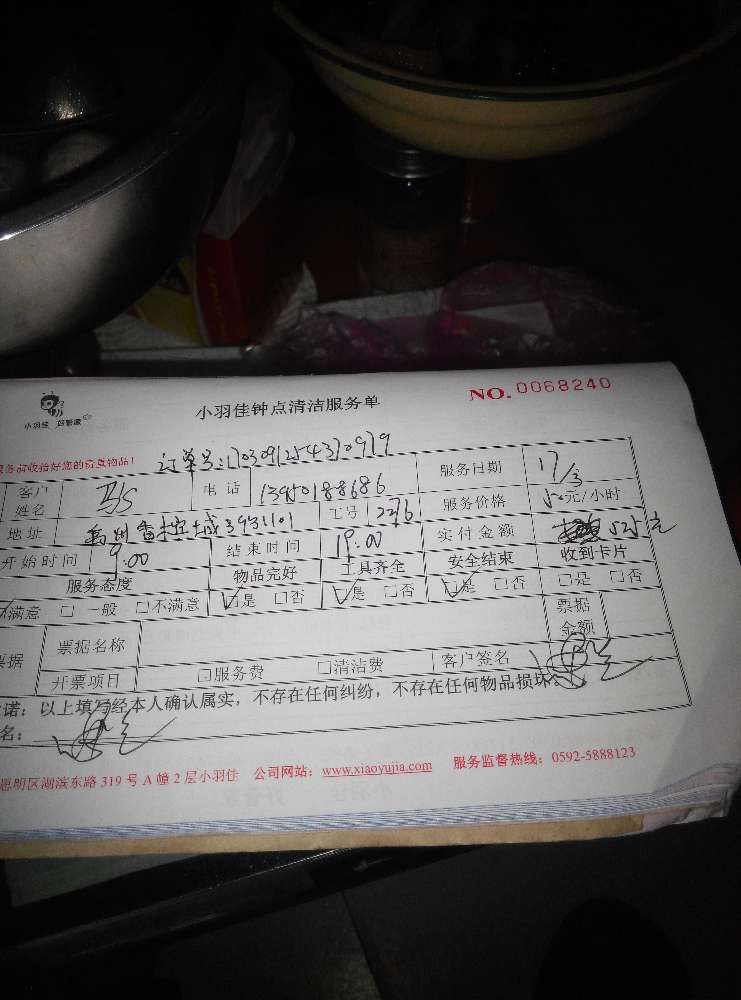 小羽佳 好管家
小羽佳钟点清洁服务单
NO.0068240
务前收拾好您的贵重物品!
订单号:
客户姓名 电话 13950188686 服务日期 17/3
地址 工号 服务价格 50元/小时
开始时间 9.00 结束时间 19.00 实付金额 525元
服务态度 物品完好 工具齐全 安全结束 收到卡片
满意 □ 一般 □不满意 □是 □否 □是 □否 □是 □否 □是 □否
票据 票据名称 票据金额
开票项目 □服务费 □清洁费 客户签名
诺：以上填写经本人确认属实，不存在任何纠纷，不存在任何物品损坏。
名：
思明区湖滨东路 319 号 A 幢 2 层小羽佳 公司网站：www.xiaoyujia.com 服务监督热线：0592-5888123